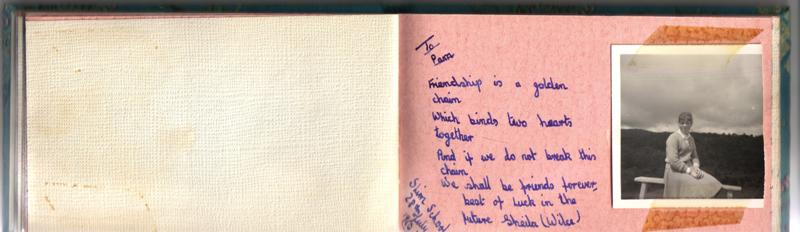 To
Pam
Friendship is a golden
chain
Which binds two hearts
together
And if we do not break this
chain
We shall be friends forever,
best of luck in the
future Sheila (Wilce)
Slim School
28th July